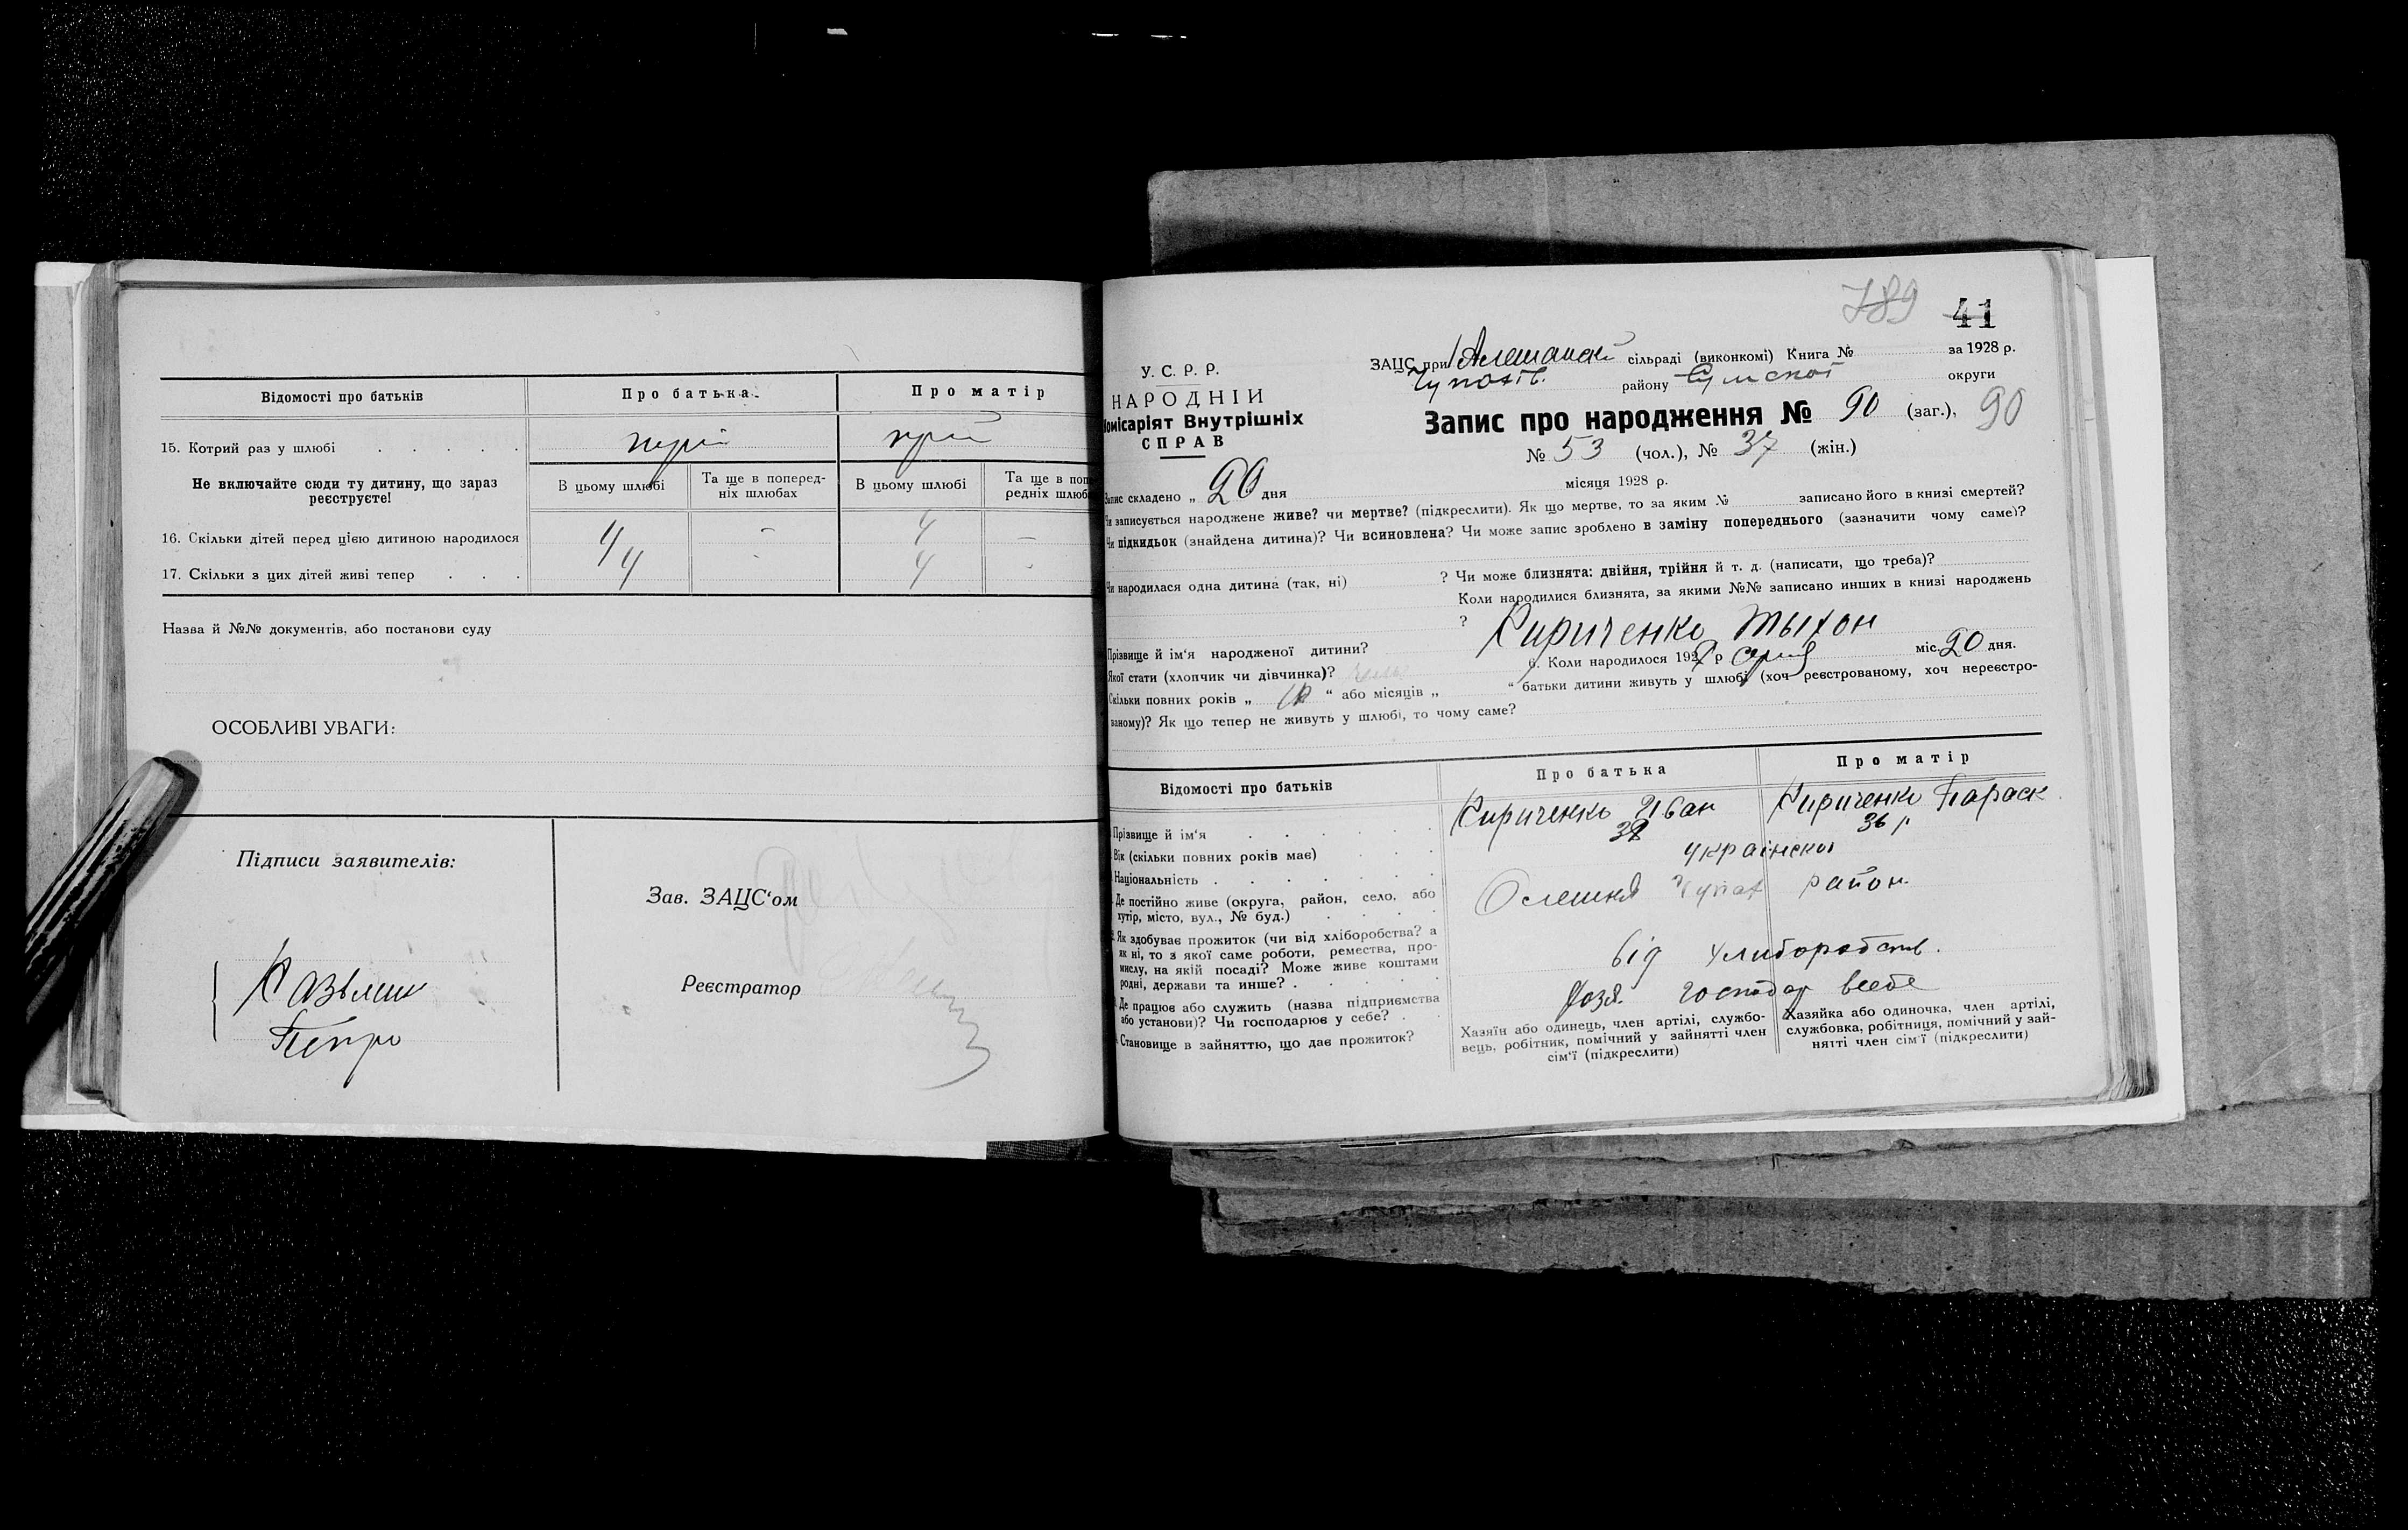 Відомості про батьків
Про батька
Про матір
15. Котрий раз у шлюбі
Не включайте сюди ту дитину, що зараз
реєструєте!
В цьому шлюбі
Та ще в поперед-
ніх шлюбах
В цьому шлюбі
Та ще в поп
редніх шлюб
16. Скільки дітей перед цією дитиною народилося 4 - 4 -
17. Скільки з цих дітей живі тепер 4 4
Назва й №№ документів, або постанови суду
ОСОБЛИВІ УВАГИ:
Підписи заявителів:
Петро
Зав. ЗАЦС'ом
Реєстратор
789 41
У. С. Р. Р.
НАРОДНІЙ
Комісаріят Внутрішніх
СПРАВ
ЗАЦС при сільраді (виконкомі) Книга № за 1928 р.
району Сумской округи
Запис про народження № 90 (заг.), 90
№ 53 (чол.), № 37 (жін.)
Запис складено „ 20 дня місяця 1928 р.
Чи записується народжене живе? чи мертве? (підкреслити). Як що мертве, то за яким № записано його в книзі смертей?
Чи підкидьок (знайдена дитина)? Чи всиновлена? Чи може запис зроблено в заміну попереднього (зазначити чому саме)?
Чи народилася одна дитина (так, ні) ? Чи може близнята: двійня, трійня й т. д. (написати, що треба)?
Коли народилися близнята, за якими №№ записано инших в книзі народжень
?
Прізвище й ім'я народженої дитини? Кириченко Тыхон
Якої стати (хлопчик чи дівчинка)? 6. Коли народилося 1928 р міс. 20 дня.
Скільки повних років „ “ або місяців „ “ батьки дитини живуть у шлюбі (хоч реєстрованому, хоч нереєстро-
ваному)? Як що тепер не живуть у шлюбі, то чому саме?
Відомості про батьків
Про батька
Про матір
Прізвище й ім'я Кириченко Иван Кириченко Параск
Вік (скільки повних років має) 38 36 р
Національність українскоі
Де постійно живе (округа, район, село, або
хутір, місто, вул., № буд.) Олешня Чупах район.
Як здобуває прожиток (чи від хліборобства? а
як ні, то з якої саме роботи, ремества, про-
мислу, на якій посаді? Може живе коштами
родні, держави та инше?
від хлиборобств.
Де працює або служить (назва підприємства
або установи)? Чи господарює у себе?
Хозя. господар всебе
Становище в зайняттю, що дає прожиток?
Хазяїн або одинець, член артілі, службо-
вець, робітник, помічний у зайнятті член
сім'ї (підкреслити)
Хазяйка або одиночка, член артілі,
службовка, робітниця, помічний у зай-
нятті член сім'ї (підкреслити)